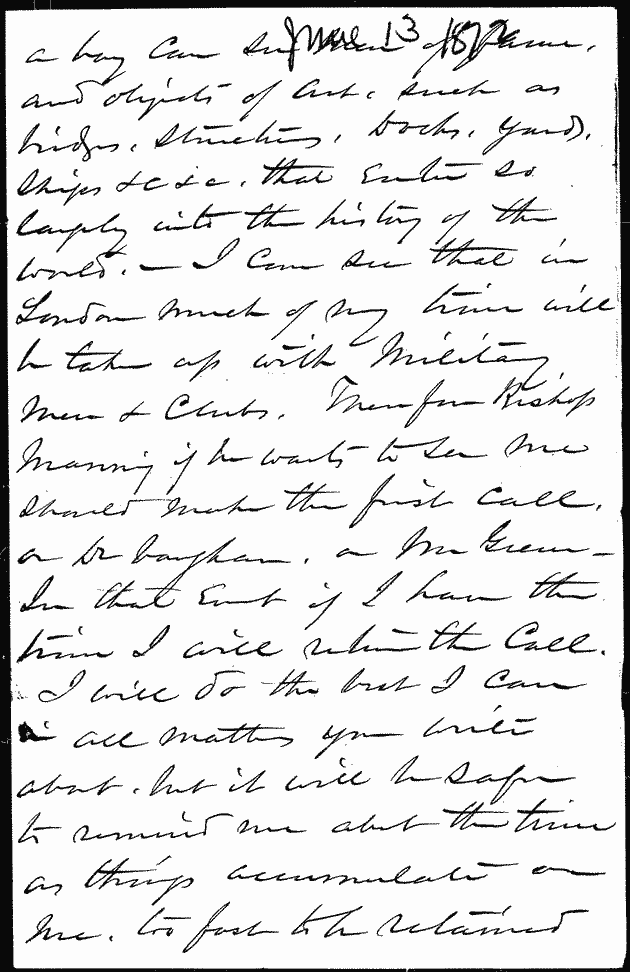 June 13 1872
a boy can see men of fame,
and objects of Art, such as
bridges, structures, Docks, Yards,
Ships &c &c, that Enter so
largely into the history of the
world. — I can see that in
London much of my time will
be taken up with Military
Men & Clubs. Therefore Bishop
Manning if he wants to see me
should make the first call,
or Dr Vaughan, or Mr Green —
In that Event if I have the
time I will return the Call.
I will do the best I can
in all matters you write
about, but it will be safer
to remind me about the time
as things accumulate on
me, too fast to be retained